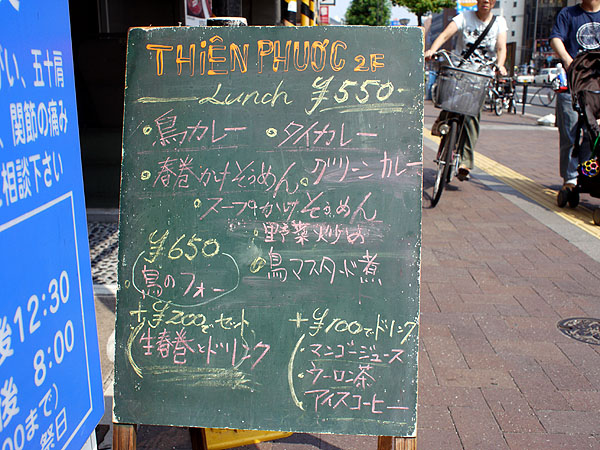 THIÊN PHƯỚC 2F
Lunch ¥550-
・鳥カレー ・タイカレー
・春巻かけそうめん 。グリーンカレー
・スープかけそうめん
・野菜炒め
¥650
・鳥マスタード煮
鳥のフォー
+¥200でセット
(生春巻とドリンク
+¥100でドリンク
・マンゴージュース
・ウーロン茶
アイスコーヒー
がい、五十肩
、関節の痛み
相談下さい
後 12:30
後 8:00
:00まで)
祭日